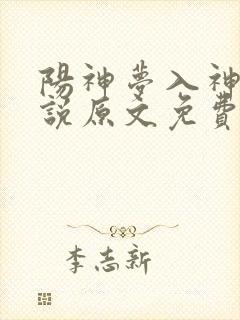 陽神夢入神
說原文免費
李志新